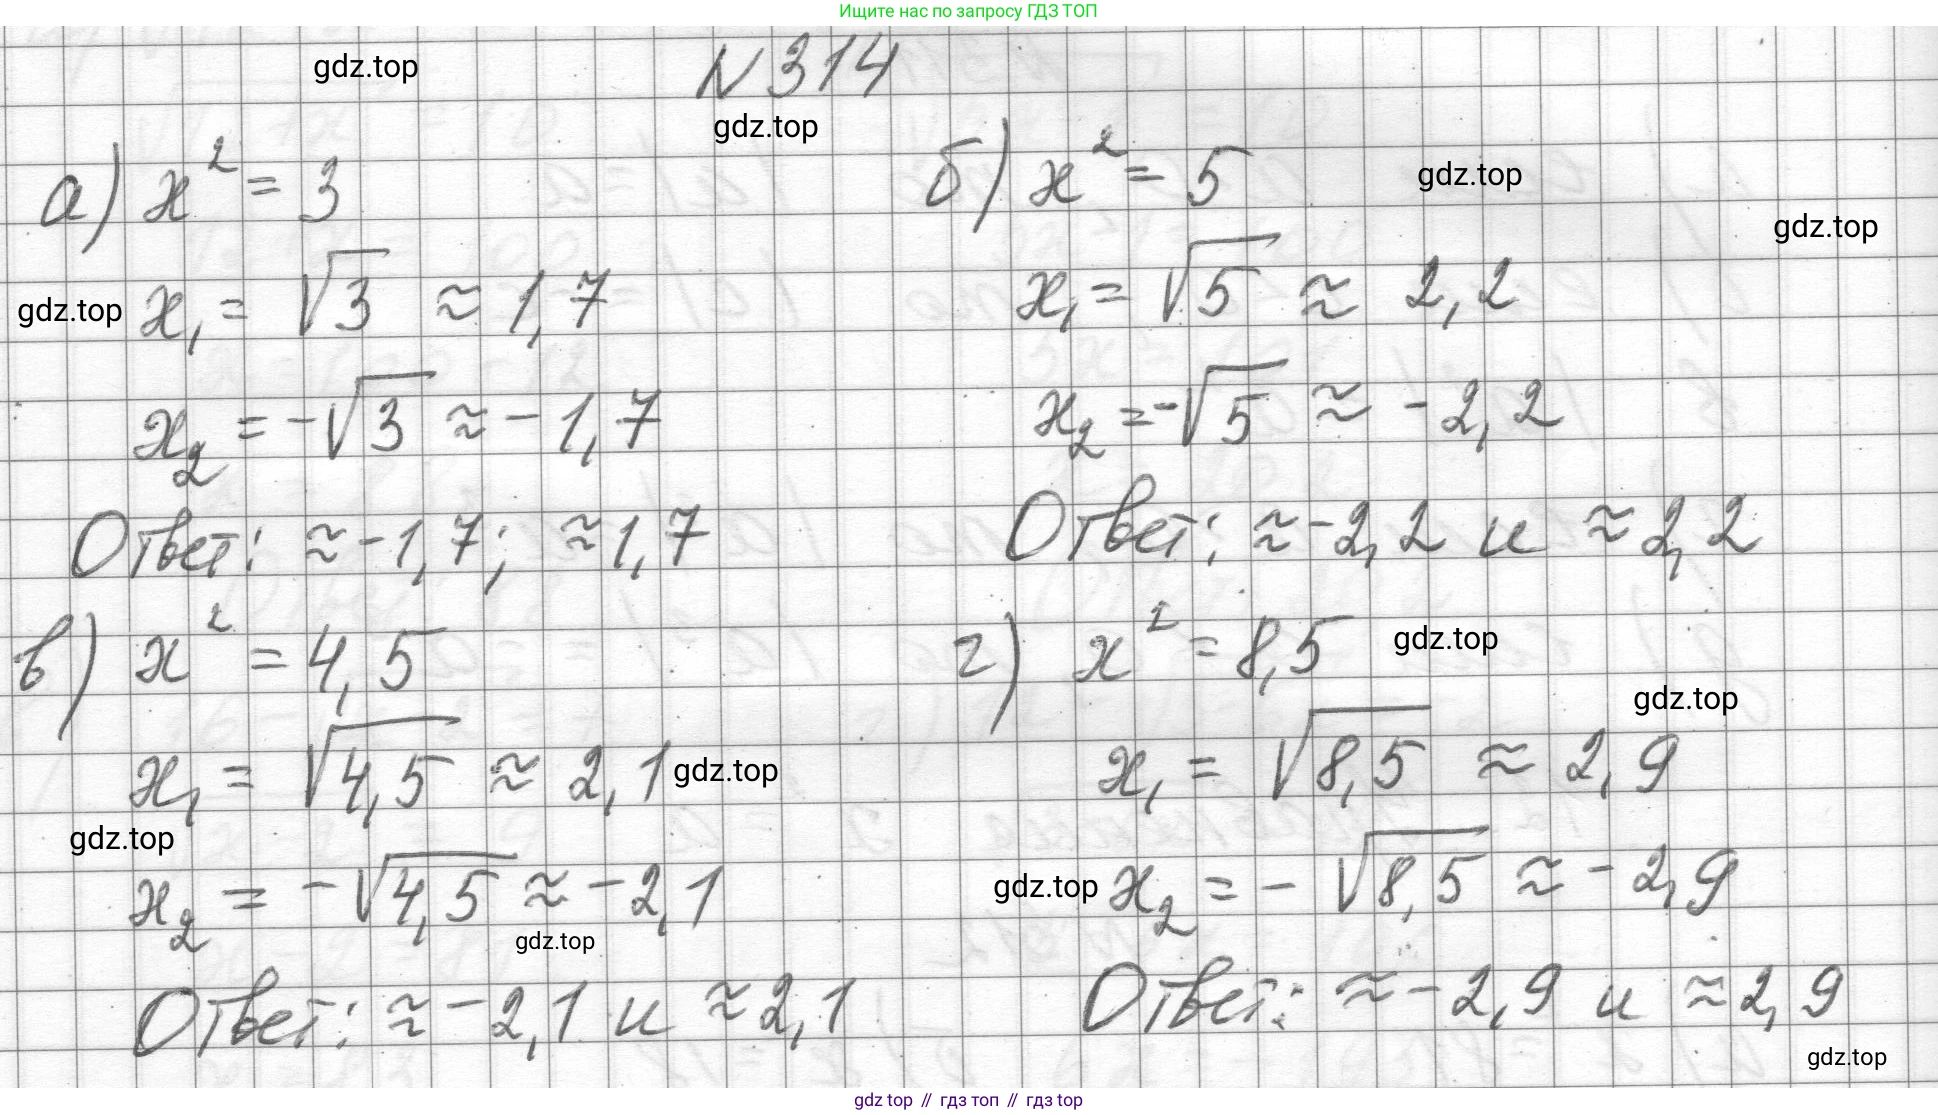 Ищите нас по запросу ГДЗ ТОП
gdz.top
N 314
gdz.top
а) x² = 3
x₁ = √3 ≈ 1,7
gdz.top
x₂ = -√3 ≈ -1,7
Ответ: ≈ -1,7; ≈ 1,7
б) x² = 5
gdz.top
gdz.top
x₁ = √5 ≈ 2,2
x₂ = -√5 ≈ -2,2
Ответ: ≈ -2,2 и ≈ 2,2
в) x² = 4,5
x₁ = √4,5 ≈ 2,1
gdz.top
gdz.top
x₂ = -√4,5 ≈ -2,1
gdz.top
Ответ: ≈ -2,1 и ≈ 2,1
г) x² = 8,5
gdz.top
gdz.top
x₁ = √8,5 ≈ 2,9
gdz.top
x₂ = -√8,5 ≈ -2,9
Ответ: ≈ -2,9 и ≈ 2,9
gdz.top
gdz top // гдз топ // гдз top